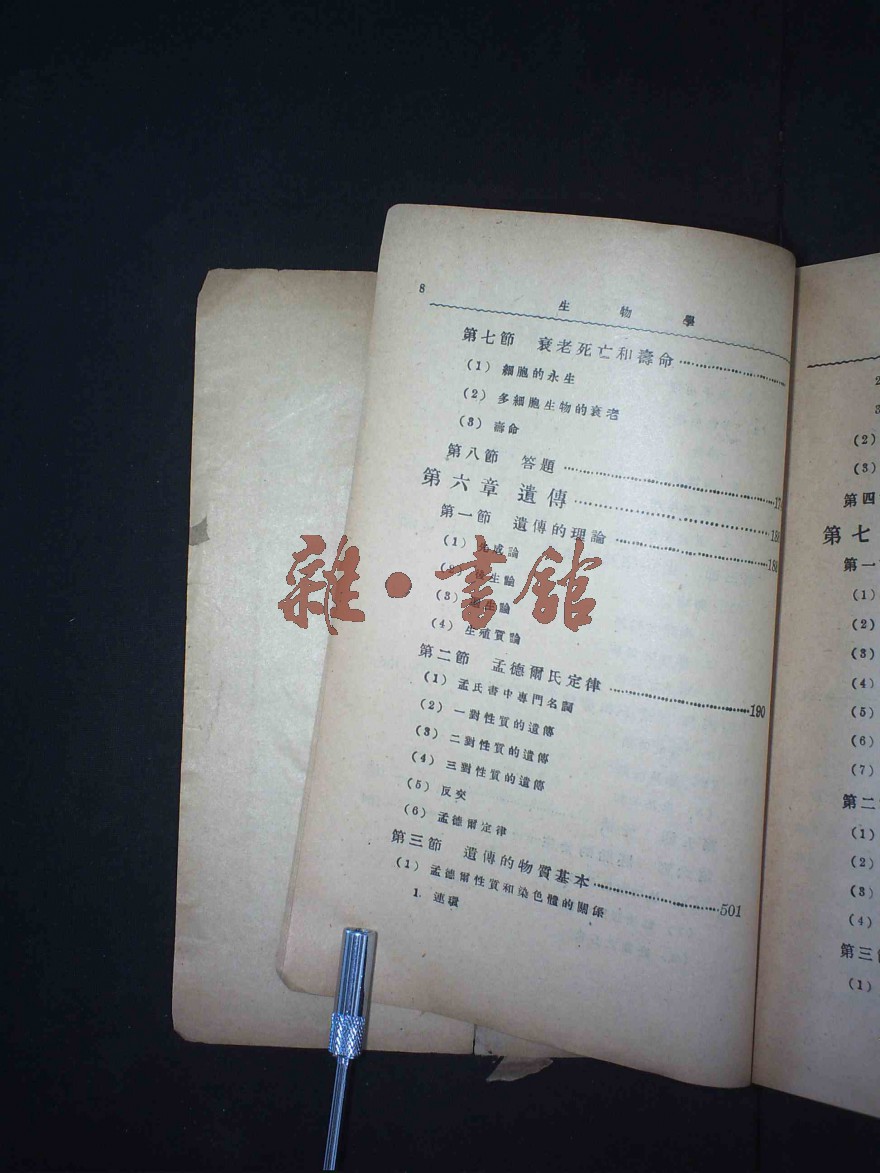 8
生物學
第七節 衰老死亡和壽命
(1) 細胞的永生
(2) 多細胞生物的衰老
(3) 壽命
第八節 答題
第六章 遺傳
第一節 遺傳的理論
(1) 先成論
(2) 後生論
(3) 生論
(4) 生殖質論
第二節 孟德爾氏定律 190
(1) 孟氏書中專門名詞
(2) 一對性質的遺傳
(3) 二對性質的遺傳
(4) 三對性質的遺傳
(5) 反交
(6) 孟德爾定律
第三節 遺傳的物質基本 501
(1) 孟德爾性質和染色體的關係
1. 連瓌
雜·書館
(2)
(3)
第四
第七
第一
(1)
(2)
(3)
(4)
(5)
(6)
(7)
第二
(1)
(2)
(3)
(4)
第三
(1)